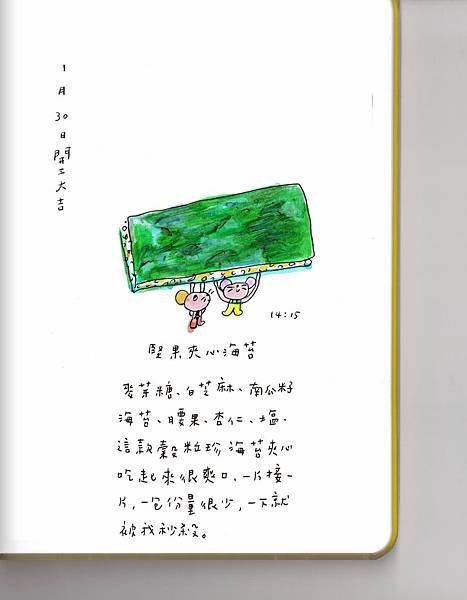 1月30日開工大吉
14:15
堅果夾心海苔
麥芽糖、白芝麻、南瓜籽
海苔、腰果、杏仁、塩.
這款穀粒珍海苔夾心
吃起來很爽口,一片接一
片,一包份量很少,一下就
被我秒殺。